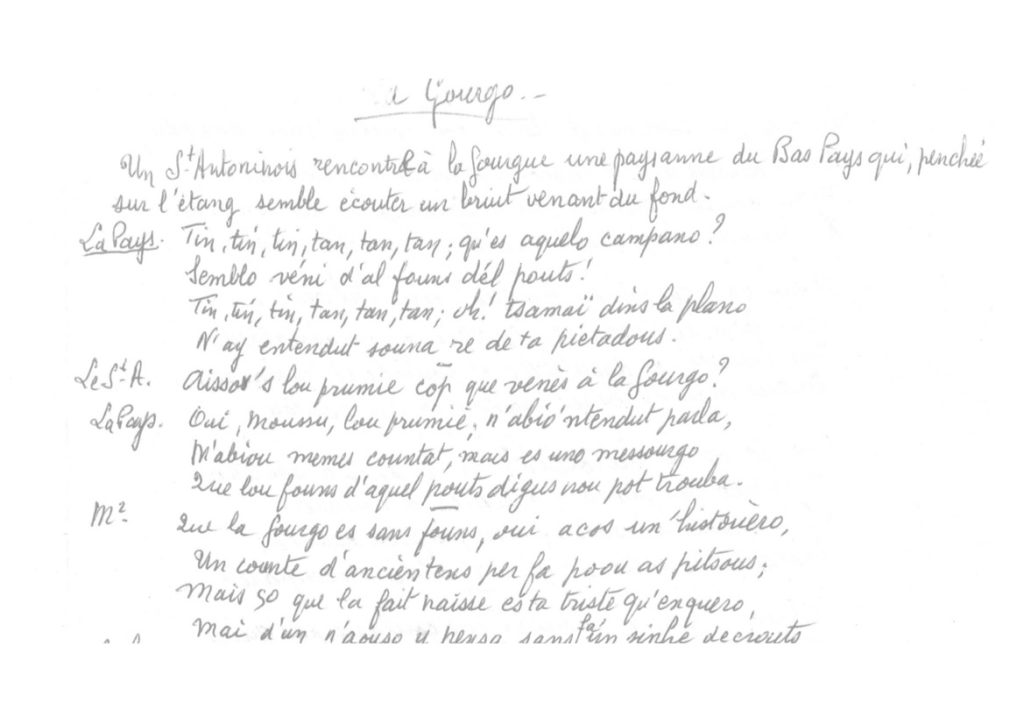 a Gourgo.-
Un St Antoninois rencontre à la Gourgue une paysanne du Bas Pays qui, penchée
sur l'étang semble écouter un bruit venant du fond.
La Pays. Tin, tin, tin, tan, tan, tan; qu'es aquelo campano?
Semblo véni d'al founs dél pouts!
Tin, tin, tin, tan, tan, tan; oh! tsamaï dins la plano
N'ay entendut souna re de ta pietadous.
Le St A. Aisso's lou prumie cop que venès à la Gourgo?
La Pays. Oui, Moussu, lou prumiè; n'abio'ntendut parla,
M'abiou memes countat, mais es uno messourgo
Que lou founs d'aquel pouts digus nou pot trouba.
M2. Que la Gourgo es sans founs, oui acos un'histouèro,
Un counte d'ancièn tens per fa poou as pitsous;
Mais so que la fait naisse es ta triste qu'enquero,
Mai d'un n'aouso y pensa sans fa un sinne de crouts